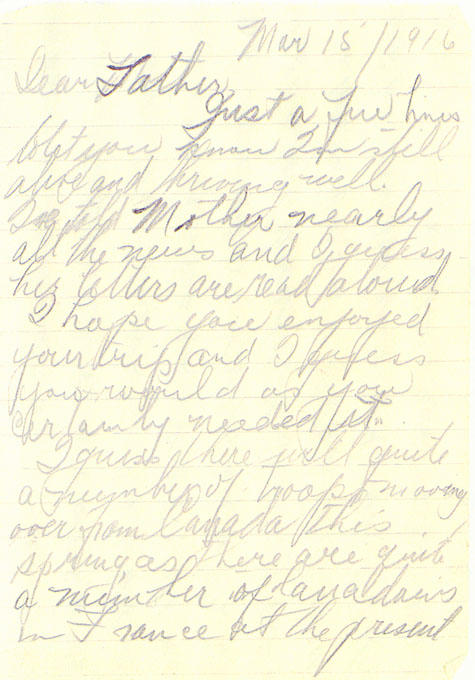 Mar 15/1916
Dear Father,
Just a few lines
to let you know I'm still
alive and thriving well.
I've told Mother nearly
all the news and I guess
her letters are read aloud.
I hope you enjoyed
your trip and I guess
you would as you
certainly needed it.
I guess there will quite
a number of troops moving
over from Canada this
spring as there are quite
a number of Canadians
in France at the present